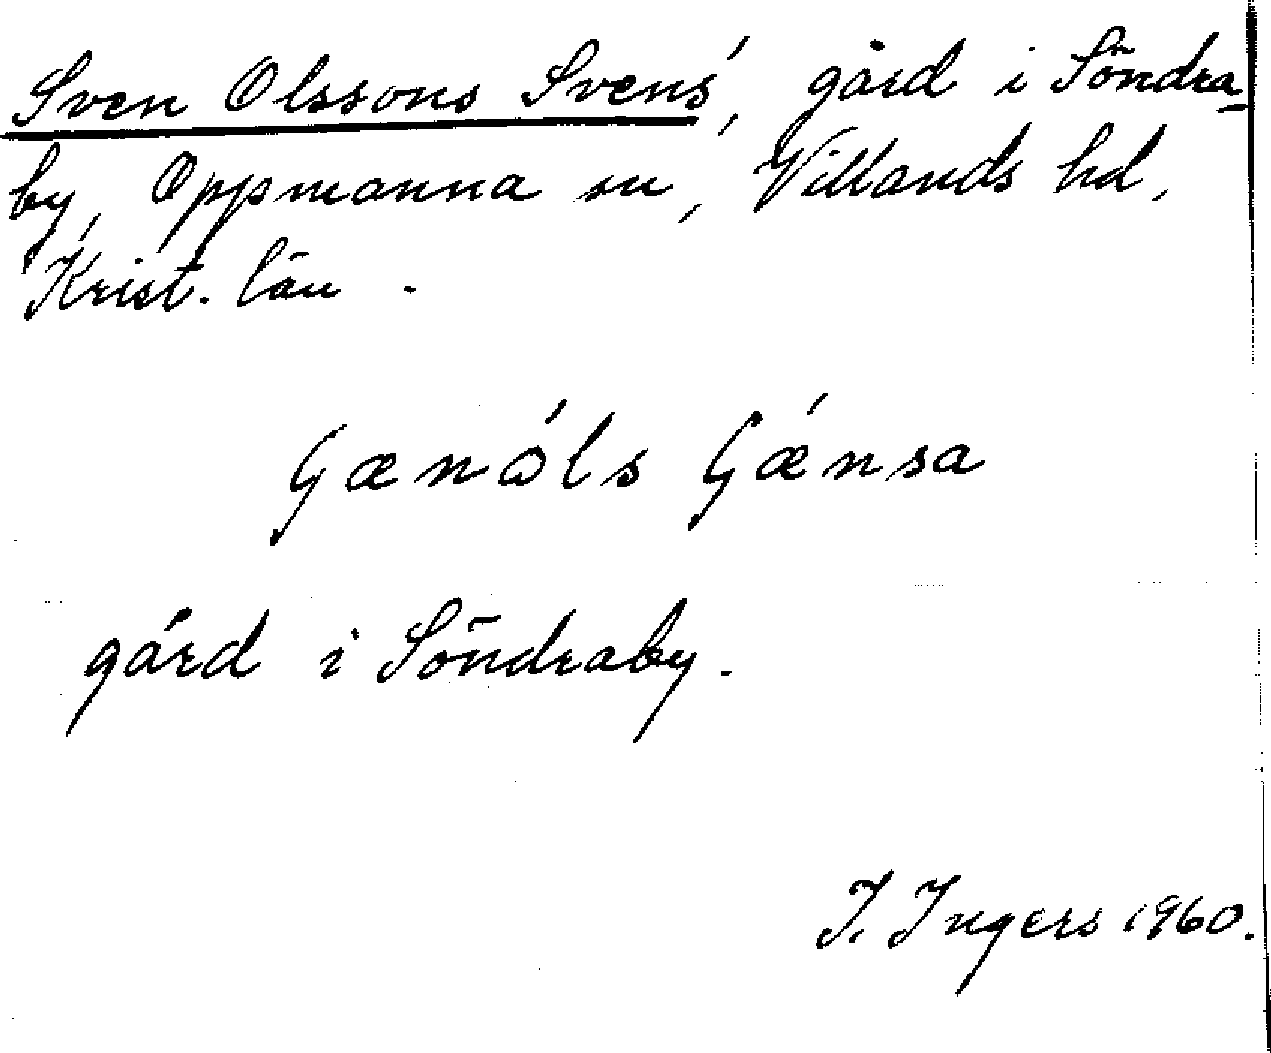 Sven Olssons Svens', gård i Söndra-
by, Oppmanna sn, Villands hd,
Krist. län.
Gænåls Gænsa
gård i Söndraby.
I. Ingers 1960.